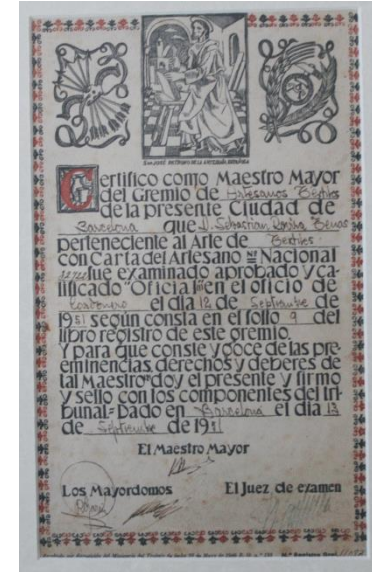 SAN JOSÉ PATRONO DE LA ARTESANÍA ESPAÑOLA
Certifico como Maestro Mayor
del Gremio de Artesanos Textiles
de la presente Ciudad de
Barcelona que D. Sebastian
perteneciente al Arte de Textiles
con Carta del Artesano Nº Nacional
fue examinado aprobado y ca-
lificado "Oficial" en el oficio de
el dia 12 de Septiembre de
1951 según consta en el folio 9 del
libro registro de este gremio.
Y para que conste y goce de las pre-
eminencias, derechos y deberes de
tal Maestro" doy el presente y firmo
y sello con los componentes del tri-
bunal.= Dado en Barcelona el dia 12
de Septiembre de 1951
El Maestro Mayor
Los Mayordomos El Juez de examen